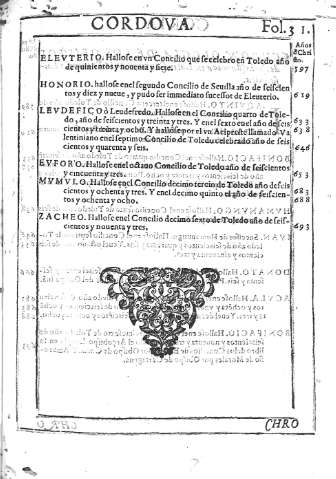 CORDOVA
Fol. 31.
Años
ELEVTERIO. Hallose en vn Concilio que se celebro en Toledo año
de quinientos y nouenta y siete.
597
HONORIO. hallose en el segundo Concilio de Seuilla año de seiscien
tos y diez y nueue, y pudo ser immediato sucessor de Eleuterio.
619
LEVDEFICO, ò Leudefredo. Hallose en el Concilio quarto de Tole-
do, año de seiscientos y treinta y tres. Y en el sexto de Toledo año de seis
633
cientos y treinta y ocho. Y hallose por el vn Acipreste llamado Va
638
lentiniano en el septimo Concilio de Toledo celebrado año de seis
cientos y quarenta y seis.
646
EVFORO. Hallose en el octauo Concilio de Toledo año de seiscientos
y cincuenta y tres.
653
MVMVLO. Hallose en el Concilio decimo tercio de Toledo año de seis
cientos y ochenta y tres. Y en el decimo quinto el año de seiscien-
683
tos y ochenta y ocho.
688
ZACHEO. Hallose en el Concilio decimo sexto de Toledo año de seis-
cientos y nouenta y tres.
693
CHRO